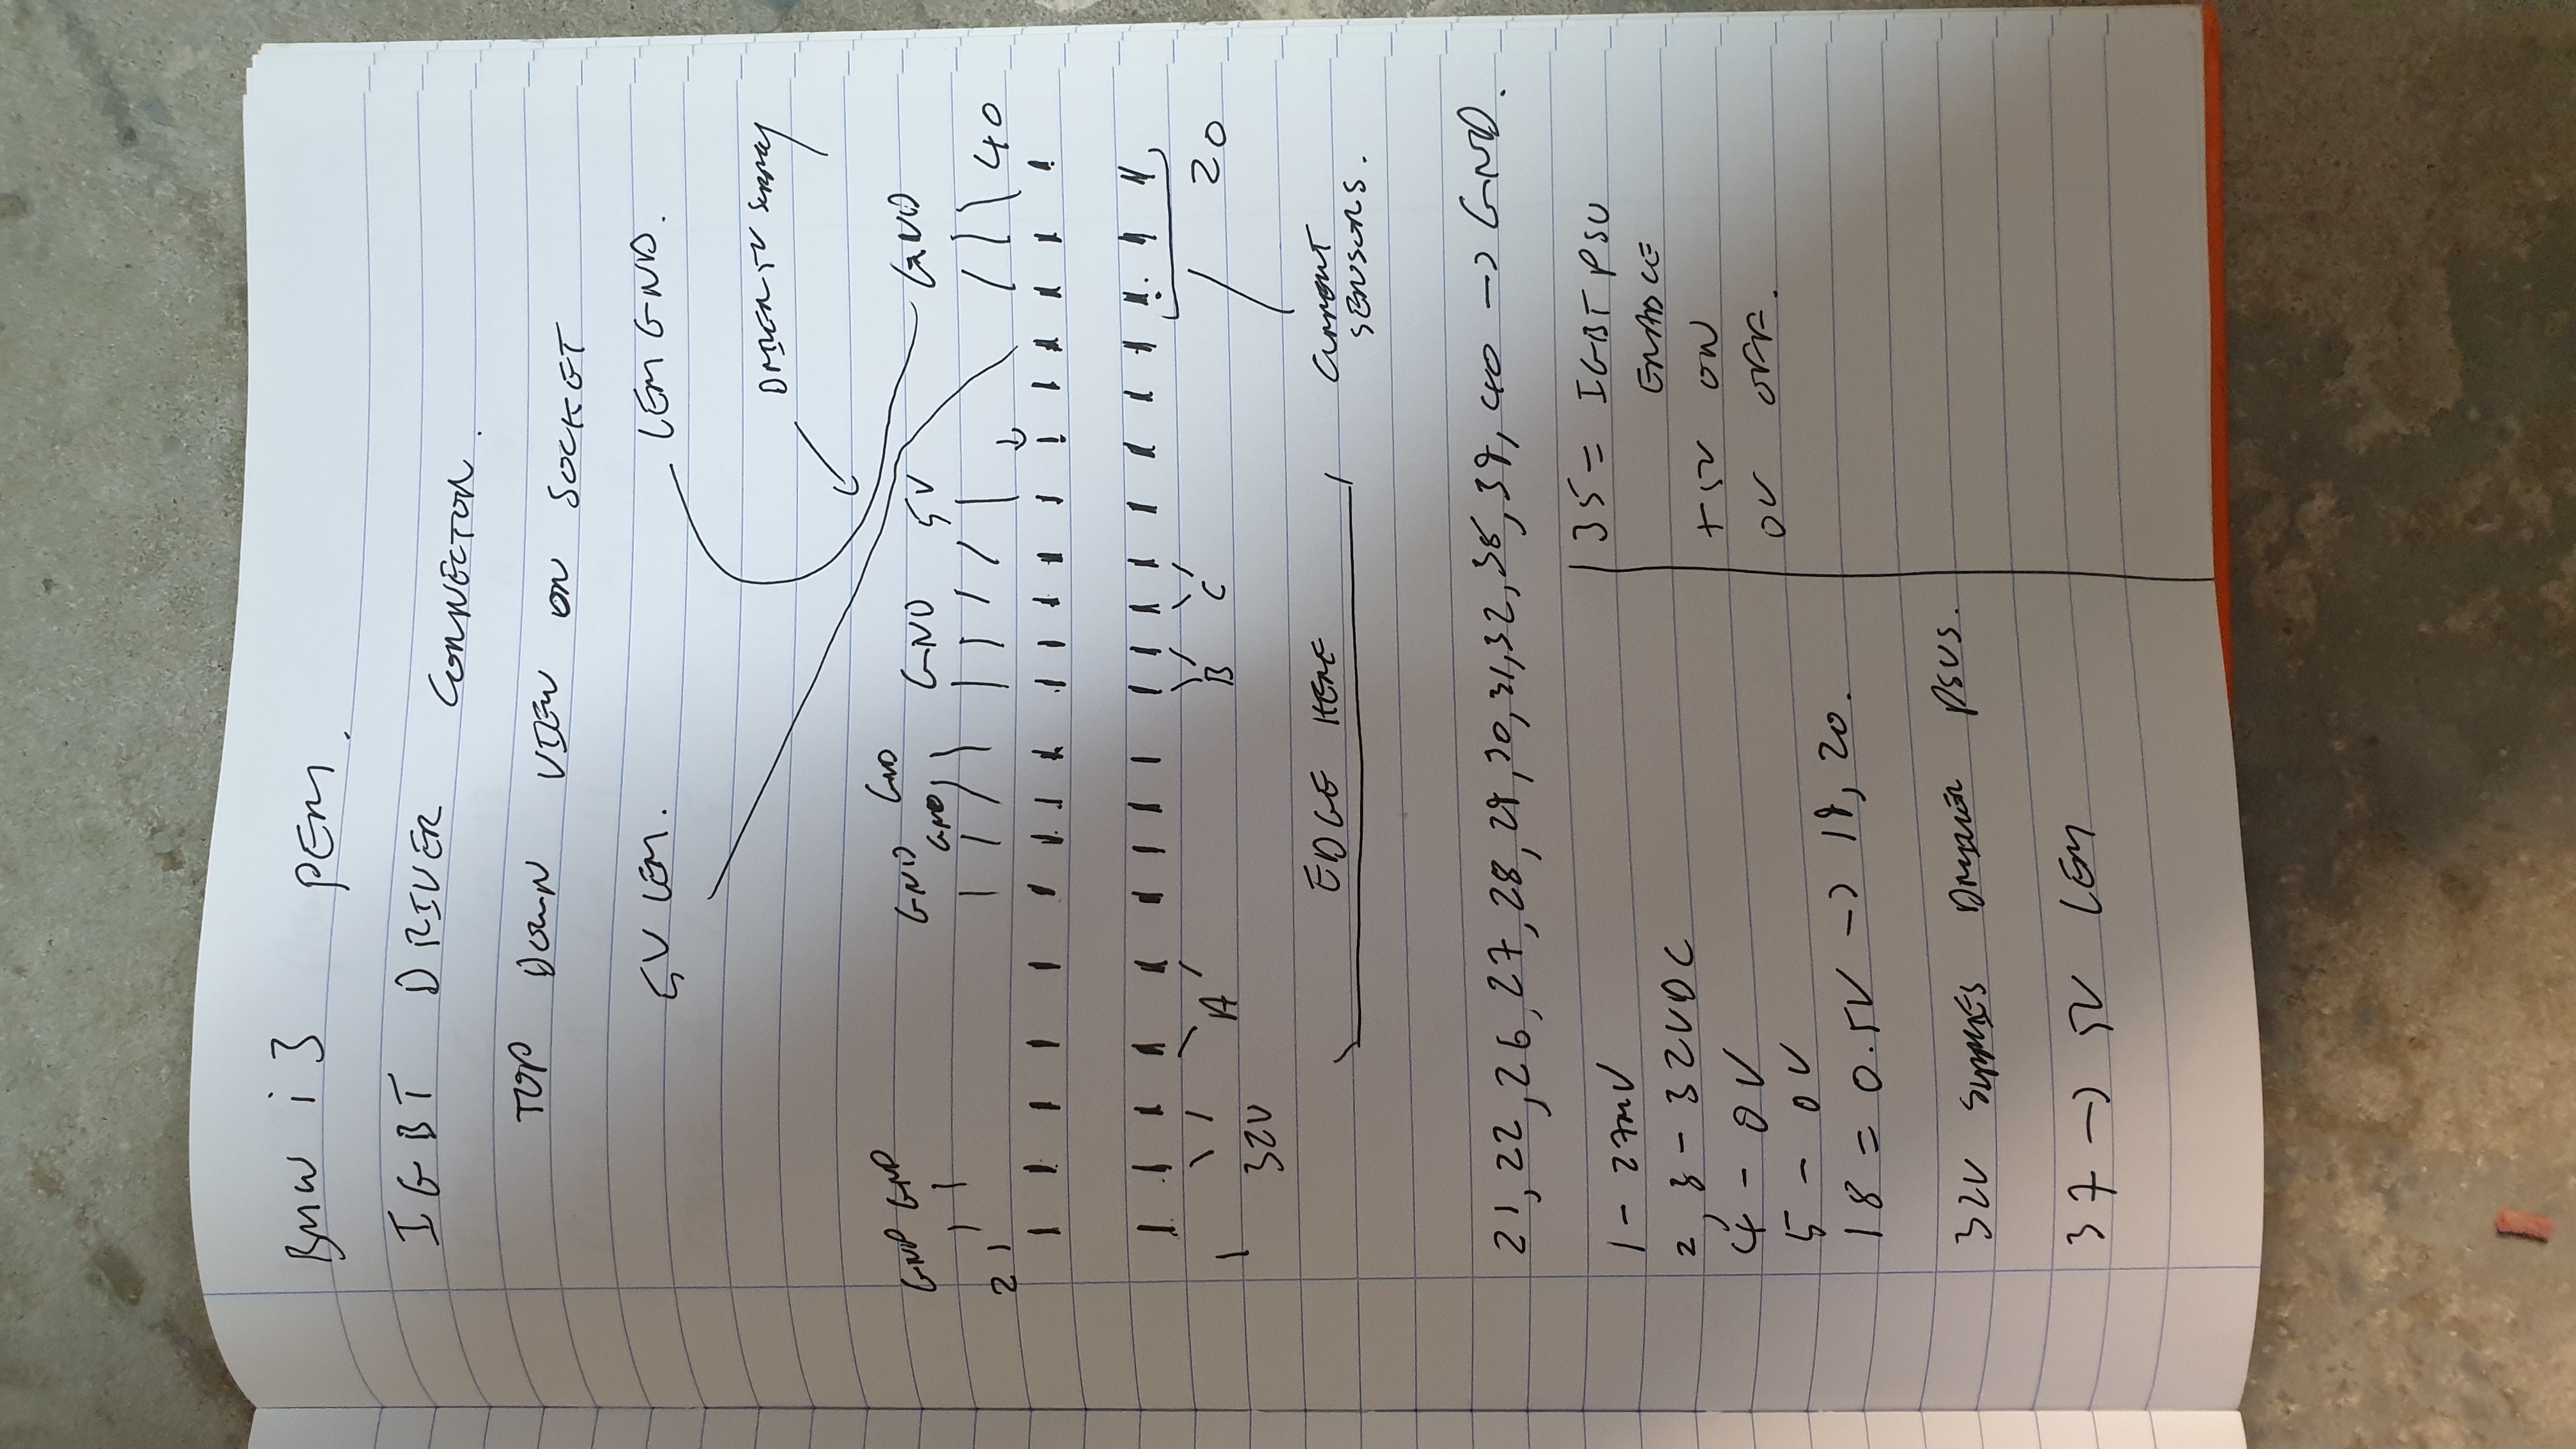 BMW i3 PEM.
IGBT DRIVER CONNECTOR.
TOP DOWN VIEW ON SOCKET
5V LEM. LEM GND.
DRIVER 5V Supply
GND GND GND GND GND GND 5V GND
21 40
1 A B C 20
32V
EDGE HERE CURRENT SENSORS.
21,22,26,27,28,29,30,31,32,38,39,40 -> GND.
1 - 27mV
2,3 - 32VDC
4 - 0V
5 - 0V
18 = 0.5V -> 19,20.
32V SUPPLIES DRIVER PSUS.
37 -> 5V LEM
35 = IGBT PSU
ENABLE
+5V ON
0V OFF.